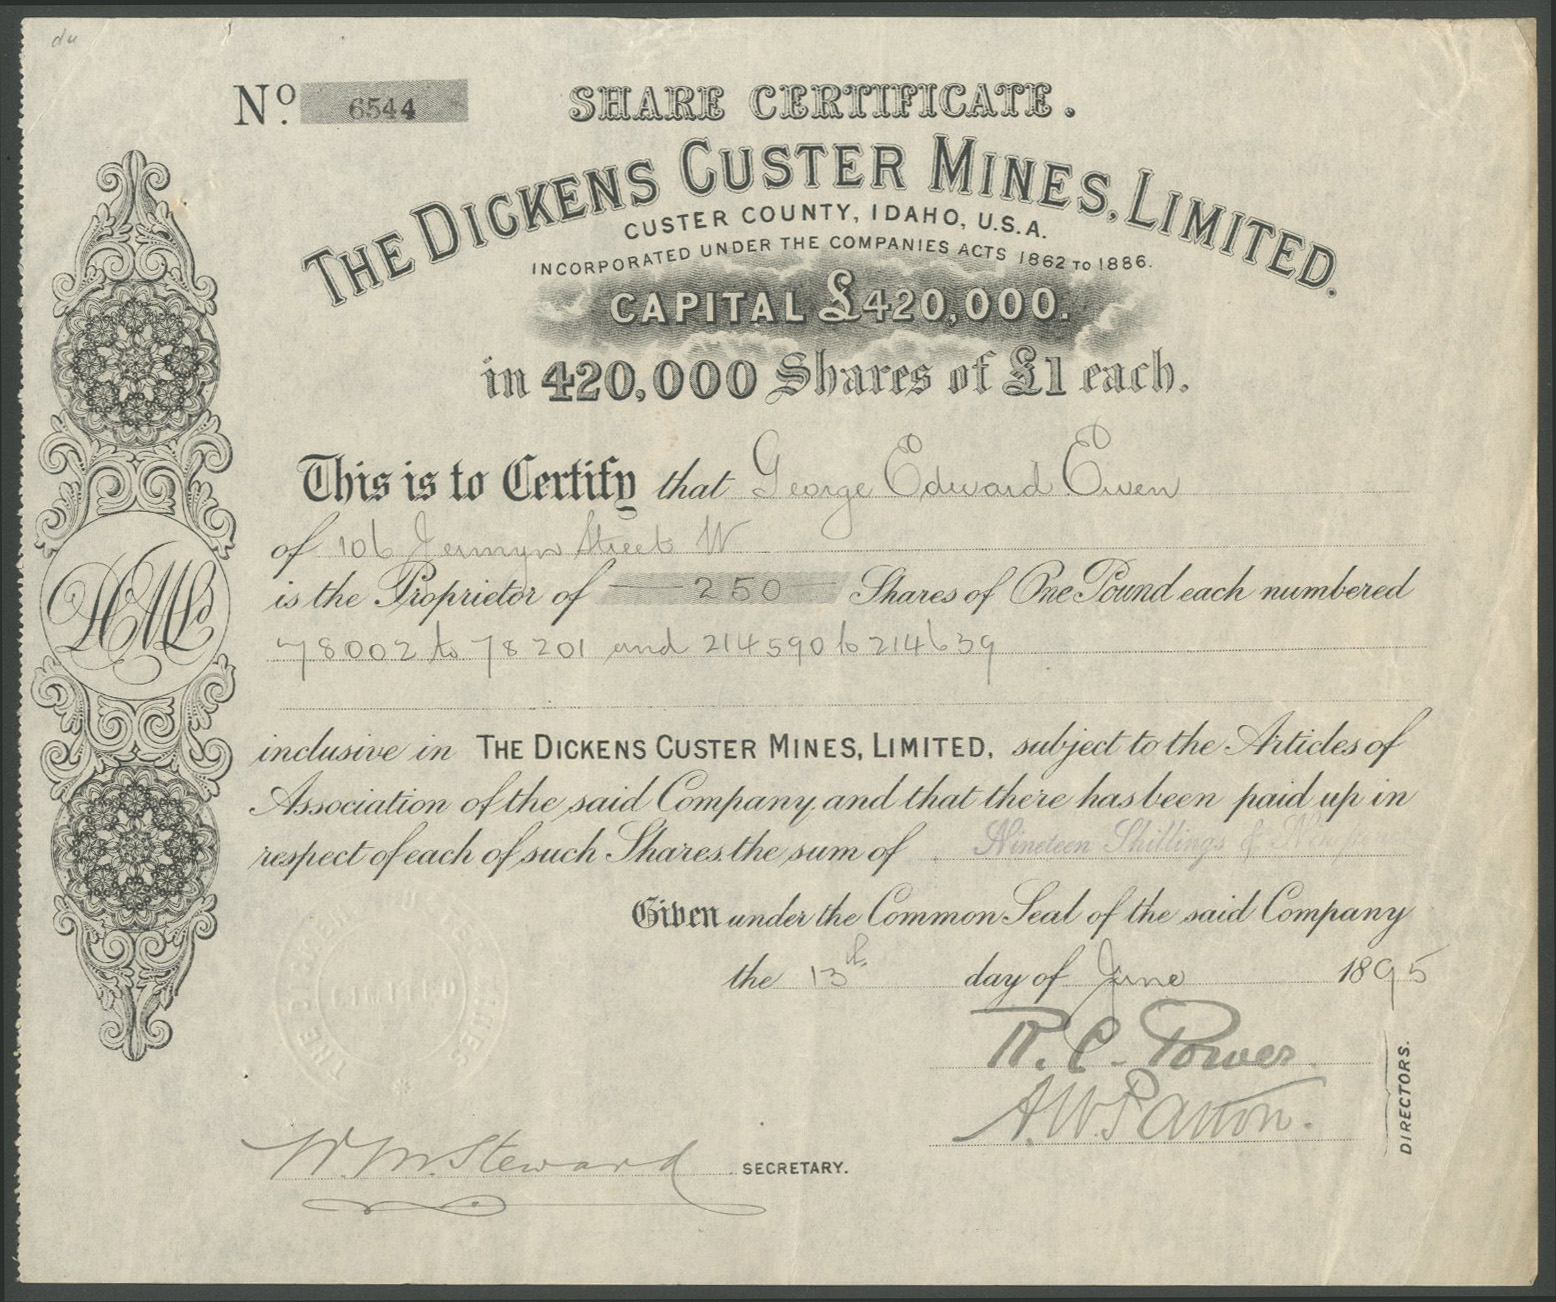 du
No. 6544
SHARE CERTIFICATE.
THE DICKENS CUSTER MINES, LIMITED.
CUSTER COUNTY, IDAHO, U.S.A.
INCORPORATED UNDER THE COMPANIES ACTS 1862 TO 1886.
CAPITAL £420,000.
in 420,000 Shares of £1 each.
This is to Certify that George Edward Ewen
of 106 Jermyn Street W
is the Proprietor of 250 Shares of One Pound each numbered
78002 to 78201 and 214590 to 214639
inclusive in THE DICKENS CUSTER MINES, LIMITED, subject to the Articles of
Association of the said Company, and that there has been paid up in
respect of each of such Shares, the sum of Nineteen Shillings &
Given under the Common Seal of the said Company
the 13th day of June 1895
R. C. Power
A. W. Patton.
DIRECTORS.
W. M. Steward SECRETARY.
LIMITED